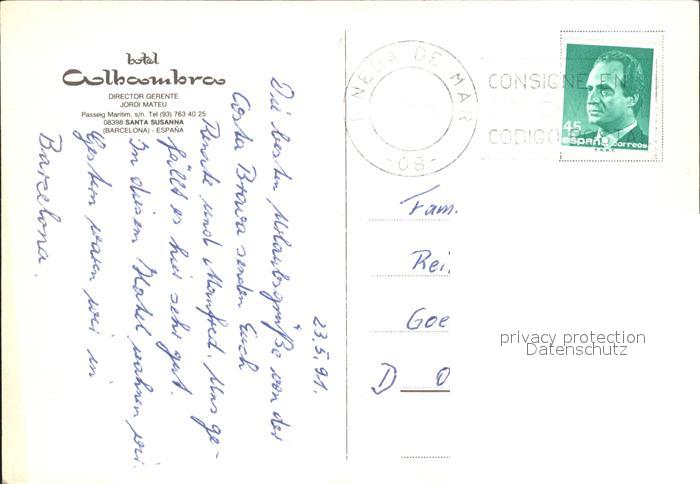 hotel
Alhambra
DIRECTOR GERENTE
JORDI MATEU
Passeig Marítim, s/n. Tel (93) 763 40 25
08398 SANTA SUSANNA
(BARCELONA) - ESPAÑA
23.5.91.
Die besten Urlaubsgrüße von der
Costa Brava senden Euch
Renate und Manfred. Uns ge-
fällt es hier sehr gut.
In diesem Hotel wohnen wir.
Gestern waren wir in
Barcelona.
INEDA DE MAR
-08-
CONSIGNE EN
CODIGO
45
españa correos
Fam.
Rei
Goe
D O
privacy protection
Datenschutz